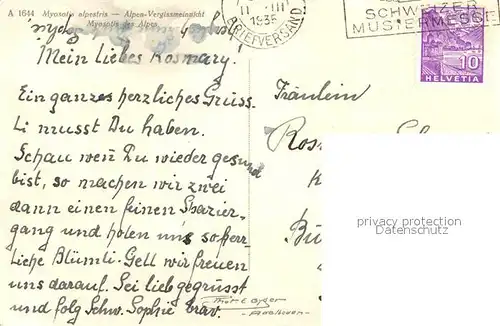 A 1644 Myosotis alpestris — Alpen-Vergissmeinnicht
Myosotis des Alpes
11. III
1935
BRIEFVERSAND.
SCHWEIZER
MUSTERMESSE
10
HELVETIA
Mein liebes Rosmary!
Ein ganzes herzliches Grüss-
Li musst Du haben.
Schau wen̄ Du wieder gesund
bist, so machen wir zwei
dann einen feinen Spazier-
gang und holen uns so herr-
liche Blümli. Gell wir freuen
uns darauf. Sei lieb gegrüsst
und folg Schw. Sophie brav.
Fräulein
privacy protection
for collectors